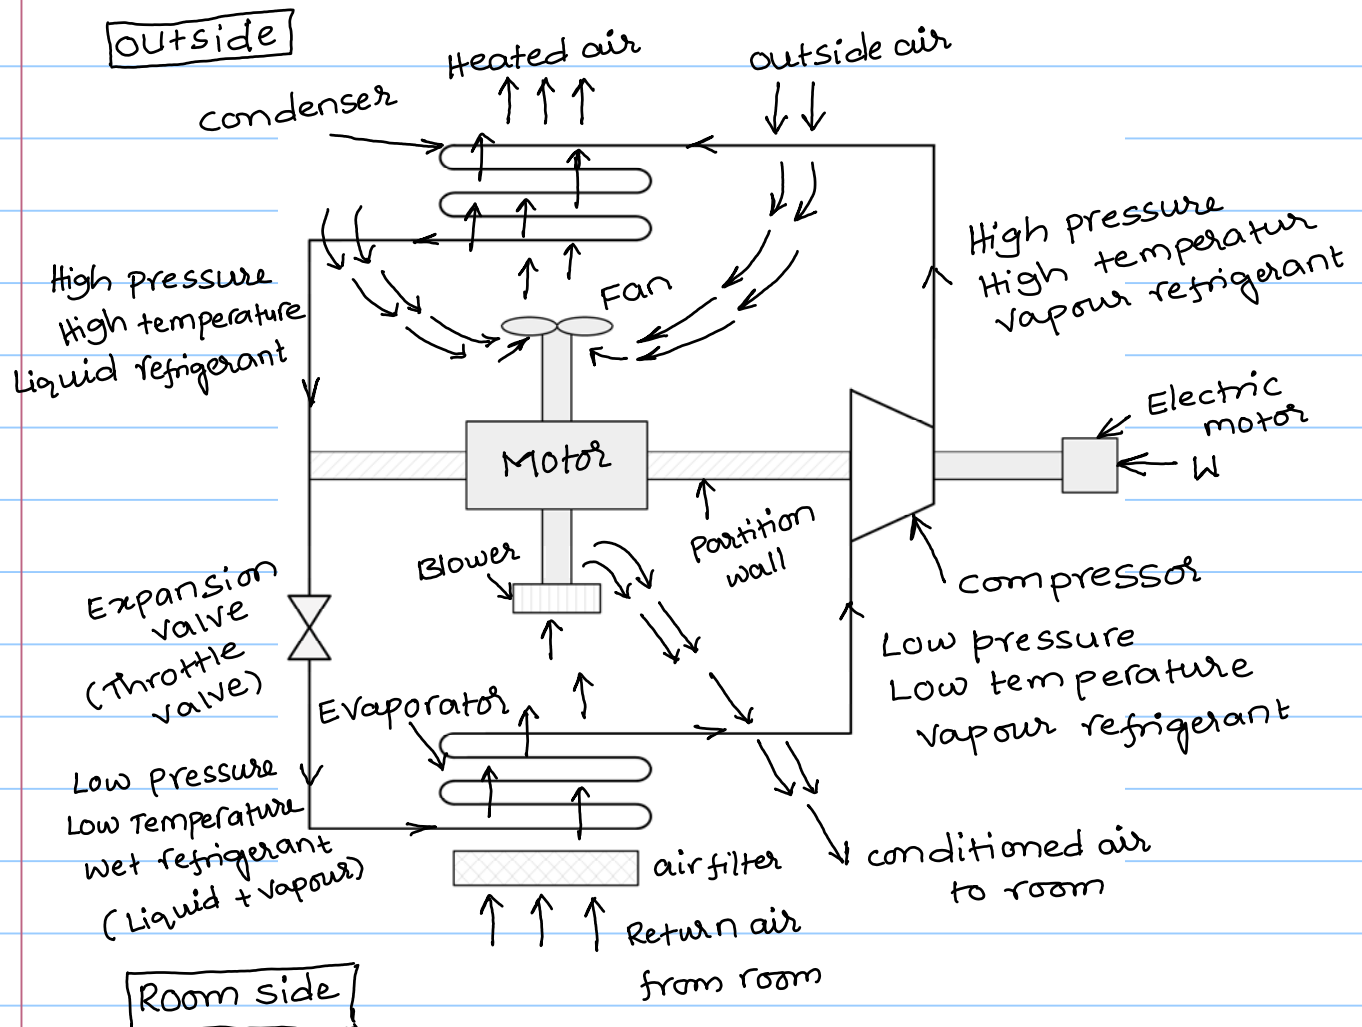 outside
Heated air
outside air
condenser
High pressure
High temperatur
vapour refrigerant
Fan
High pressure
High temperature
Liquid refrigerant
Electric
motor
W
Motor
Partition
wall
Blower
compressor
Expansion
valve
(Throttle
valve)
Low pressure
Low temperature
vapour refrigerant
Evaporator
Low pressure
Low Temperature
wet refrigerant
(Liquid + vapour)
air filter
conditioned air
to room
Return air
from room
Room side